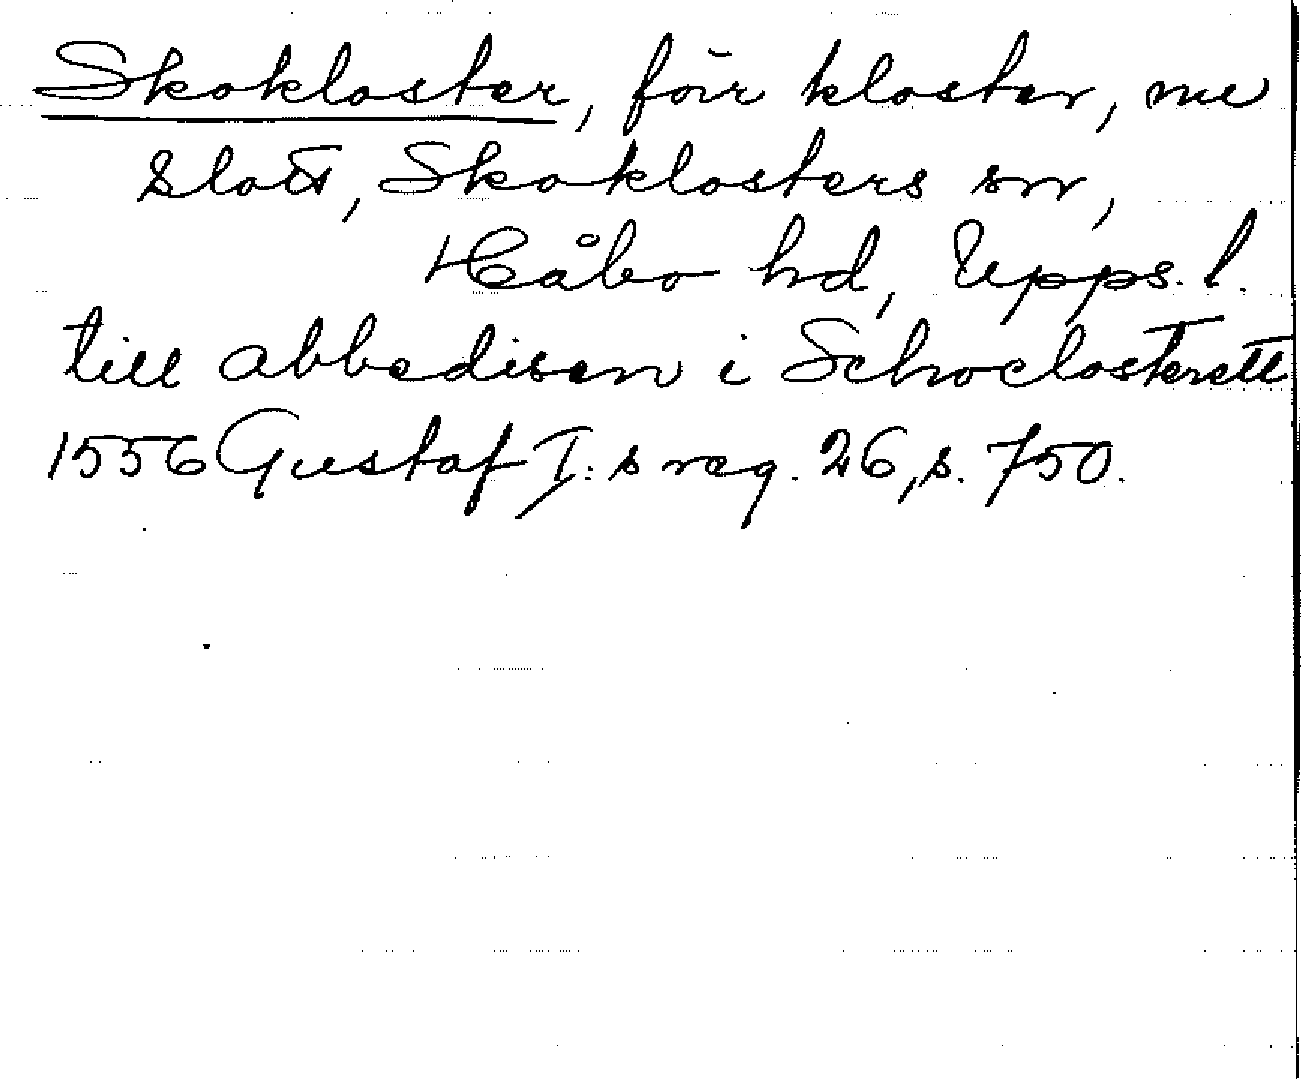 Skokloster, förr kloster, nu
slott, Skoklosters sn,
Håbo hd, Upps. l.
till abbedisen i Schoclosterett
1556 Gustaf I:s reg. 26, s. 750.